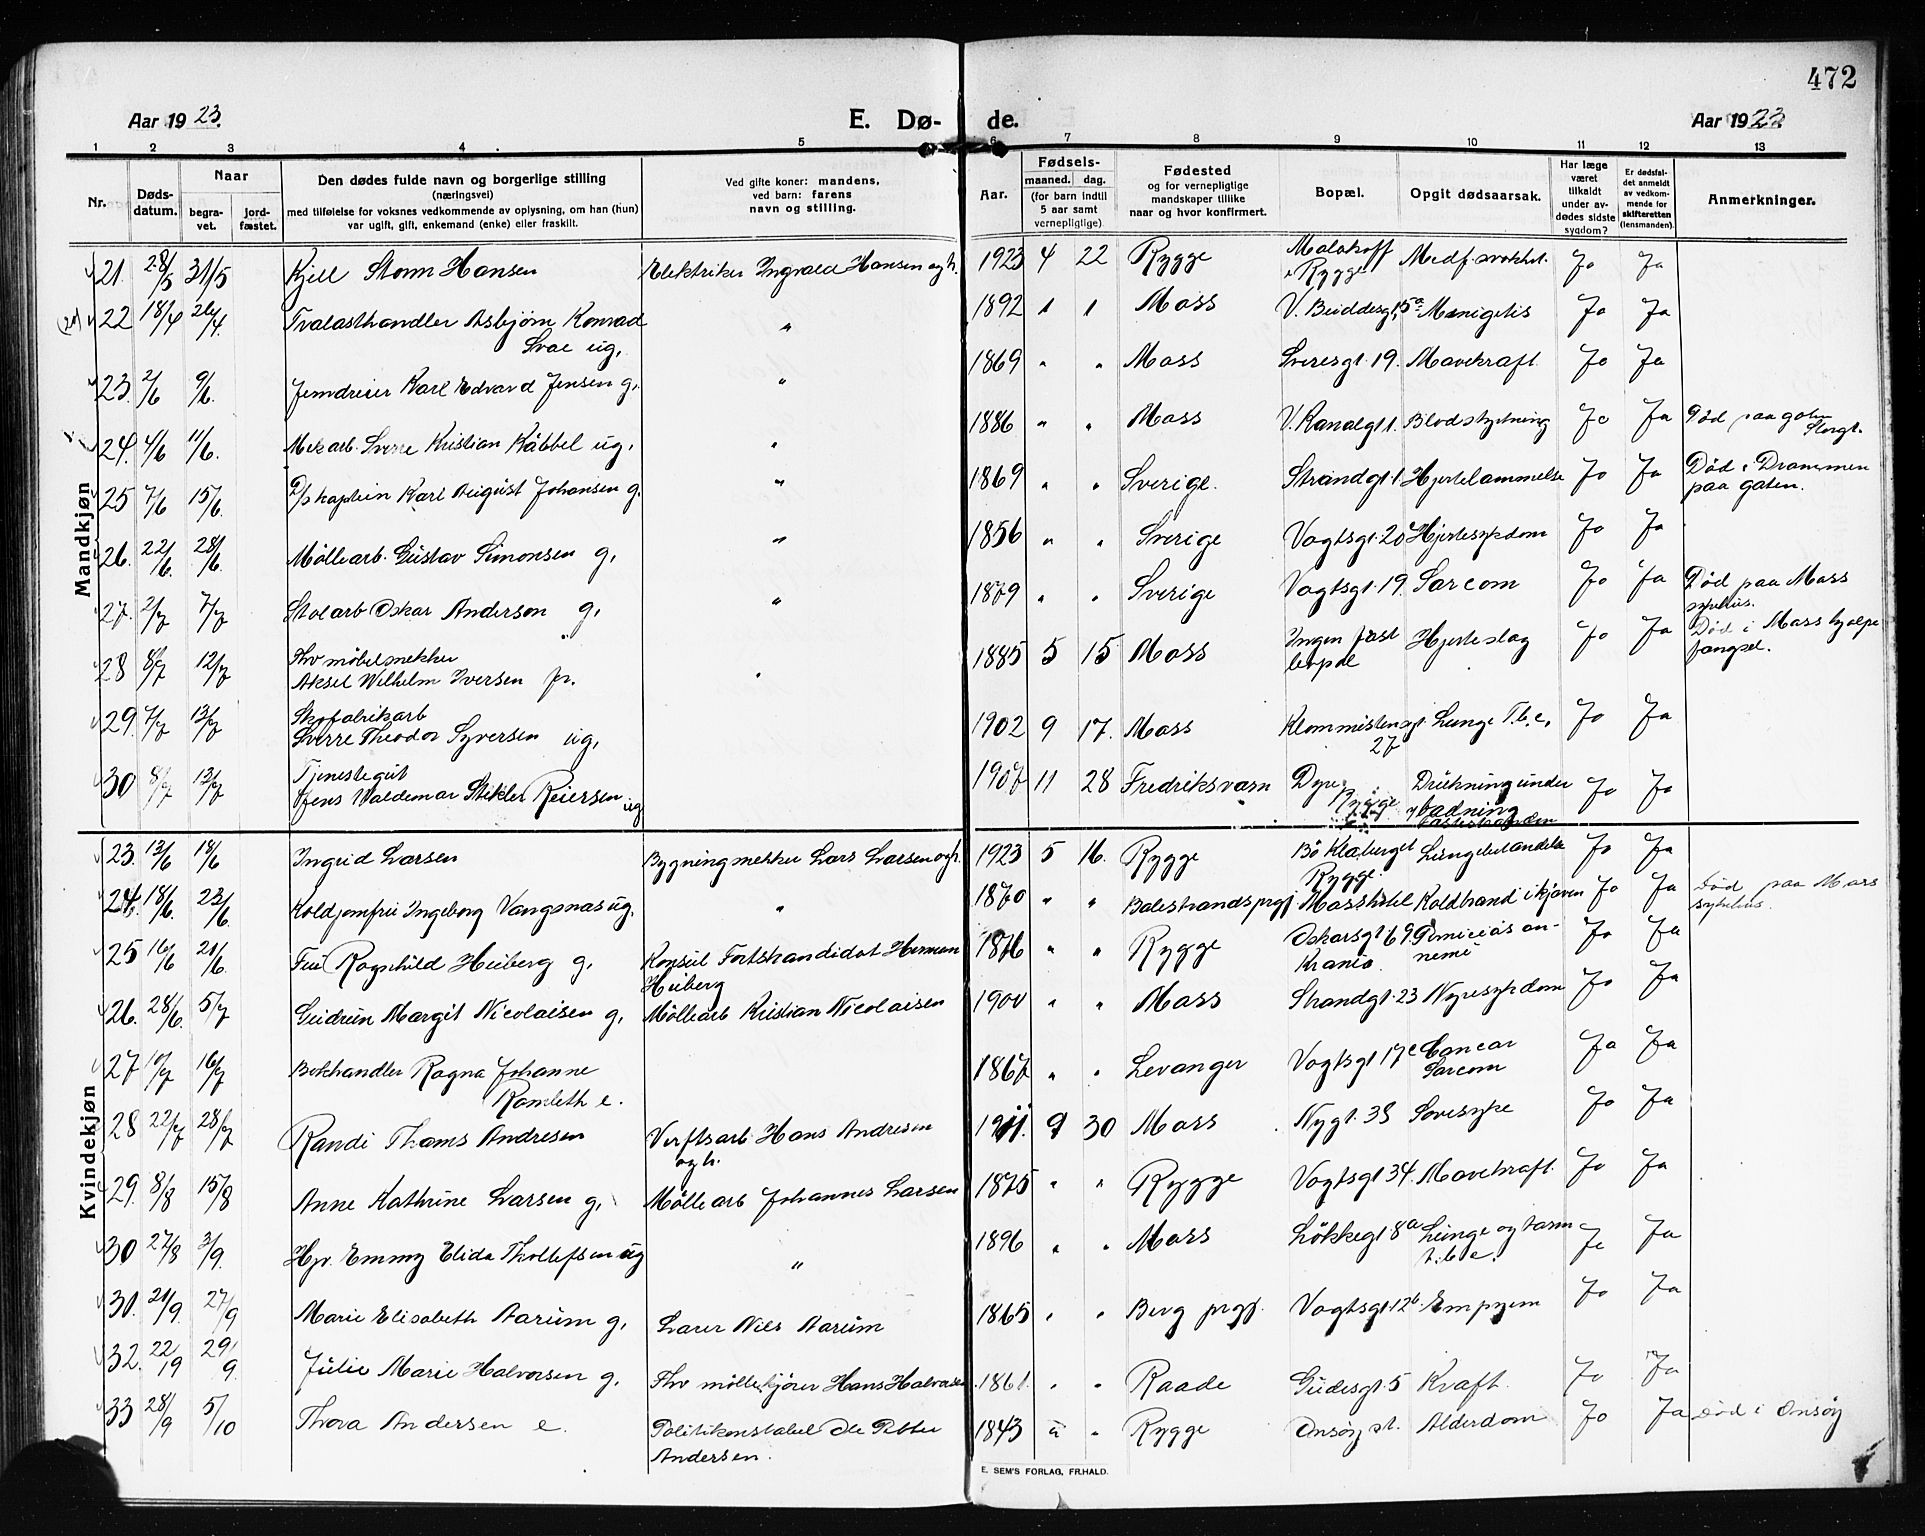 472
Aar 1923.
E. Dø-
de.
Aar 1923.
1 2 3 4 5 6 7 8 9 10 11 12 13
Nr.
Døds-
datum.
Naar
begra-
vet.
jord-
fæstet.
Den dødes fulde navn og borgerlige stilling
(næringsvei)
med tilføielse for voksnes vedkommende av oplysning, om han (hun)
var ugift, gift, enkemand (enke) eller fraskilt.
Ved gifte koner: mandens,
ved barn: farens
navn og stilling.
Aar.
Fødsels-
maaned. dag.
(for barn indtil
5 aar samt
vernepligtige)
Fødested
og for vernepligtige
mandskaper tillike
naar og hvor konfirmert.
Bopæl.
Opgit dødsaarsak.
Har læge
været
tilkaldt
under av-
dødes sidste
sygdom?
Er dødsfal-
det anmeldt
av vedkom-
mende for
skifteretten
(lensmanden).
Anmerkninger.
Mandkjøn
21. 28/5 31/5 Kjell Storm Hansen Elektriker Ingvald Hansen og h. 1923 4 22 Rygge Malakoff Medf. svakhet. Ja Ja
i Rygge
22 18/4 26/4. Trælasthandler Asbjørn Konrad " 1892 " " Moss V. Buddesgt. 15a Menigitis Ja Ja
Svae ug.
23. 2/6 9/6. Jerndreier Karl Edvard Jensen g. " 1869 " " Moss Sverresgt 19. Mavekræft. Ja Ja
24. 4/6 11/6. Mek arb. Sverre Kristian Käbbel ug. " 1886 " " Moss V. Kanalgt 1. Blodstyrtning Ja Ja Død paa gaten
Storgt.
25 7/6 15/6. D/s kaptein Karl August Johansen g. " 1869 " " Sverige. Strandgt. 1 Hjertelammelse Ja Ja Død i Drammen
paa gaten.
26. 22/6. 28/6. Møllearb. Gustav Simonsen g. " 1856 " " Sverige Vogtsgt. 20 Hjertesykdom Ja Ja
27. 2/7 7/7 Stolarb Oskar Anderson g. " 1879 " " Sverige Vogtsgt. 19. Sarcom Ja Ja Død paa Moss
sykehus.
28 8/7 12/7 Fhv møbelsnekker
Aksel Wilhelm Iversen fr. " 1885 5 15 Moss Ingen fast Hjerteslag Ja Ja Død i Moss hjælpe
bopæl fængsel.
29. 7/7 13/7 Skofabrikarb
Sverre Theodor Syversen ug. 1902 9 17. Moss Klommestensgt Lunge T.b.c. Ja Ja
27
30 8/7 13/7 Tjenestegut
Jens Valdemar Stikler Reiersen ug 1907 11 28 Fredriksværn Dyre Drukning under Ja Ja
Rygge badning
Kvindekjøn
23. 13/6 18/6 Ingrid Larsen Bygningsnekker Lars Larsen og h. 1923 5 16. Rygge Bö Klaberget Lungebetændelse Ja Ja
Rygge.
24. 18/6. 23/6 Koldjomfru Ingeborg Vangsnæs ug. " 1870 " " Balestrandsprgj Moss hotel Koldbrand i kjæven Ja Ja Død paa Moss
sykehus.
25 16/6 21/6. Fru Ragnhild Heiberg g. Konsul Forstkandidat Herman 1876 " " Rygge Oskarsgt 69. Perniciøs an- Ja Ja
Heiberg Krania. nemi
26. 28/6. 5/7 Gudrun Margit Nicolaisen g. Møllearb Kristian Nicolaisen 1900 " " Moss Strandgt. 23 Nyresykdom Ja Ja
27 10/7 16/7 Bokhandler Ragna Johanne 1867 " " Levanger Vogtsgt 17c Cancar Ja Ja
Ramleth e. Sarcom
28 22/7 28/7 Randi Thoms Andresen Verftsarb. Hans Andresen 1911. 9 30 Moss Nygt. 38 Sovesyke Ja Ja
og h.
29. 8/8 15/8 Anne Kathrine Larsen g. Møllearb Johannes Larsen 1875 " " Rygge Vogtsgt 34. Mavekræft. Ja Ja
30 27/8 3/9. Hjv. Emmy Elida Thollefsen ug " 1896 " " Moss Løkkegt 8a Lunge og tarm Ja Ja
t.b.c.
31. 21/9. 27/9 Marie Elisabeth Aarum g. Lærer Nils Aarum 1865 " " Berg prgj. Vogtsgt. 12b. Empyem Ja Ja
32. 22/9 29/9. Julie Marie Halvorsen g. Fhv møllekjører Hans Halvorsen 1861. " " Raade Gudesgt. 5 Kræft. Ja Ja
33 28/9 5/10 Thora Andersen e. Politikonstabel Ole Petter 1843 " " Rygge Onsøy st. Alderdom Ja Ja Død i Onsøy
Andersen.
E. SEM'S FORLAG, FR.HALD.